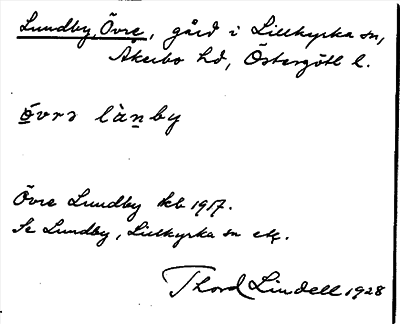 Lundby, Övre, gård i Lillkyrka sn,
Åkerbo hd, Östergötl l.
ö́vrə làṉby
Övre Lundby kb 1917.
Se Lundby, Lillkyrka sn etc.
Thord Lindell 1928